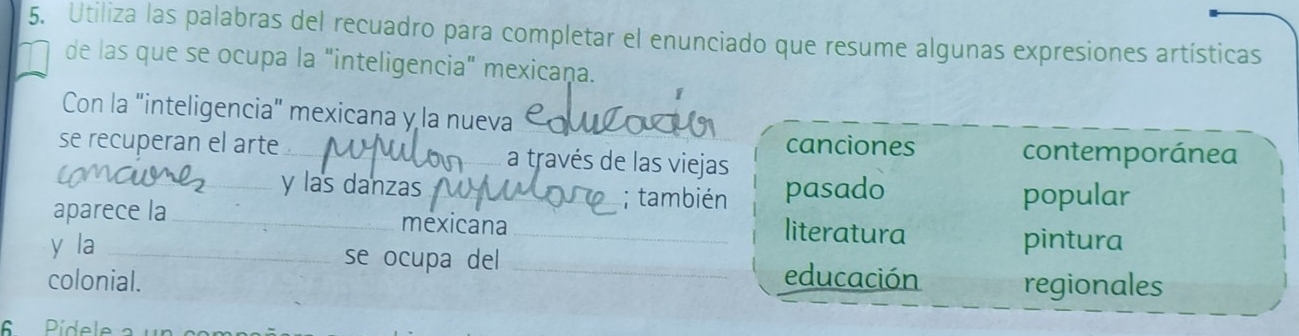 5. Utiliza las palabras del recuadro para completar el enunciado que resume algunas expresiones artísticas
de las que se ocupa la "inteligencia" mexicana.
Con la "inteligencia" mexicana y la nueva educación
se recuperan el arte popular a través de las viejas
canciones y las danzas populare ; también
aparece la mexicana
y la se ocupa del
colonial.
canciones contemporánea
pasado popular
literatura pintura
educación regionales
6. Pídele a un